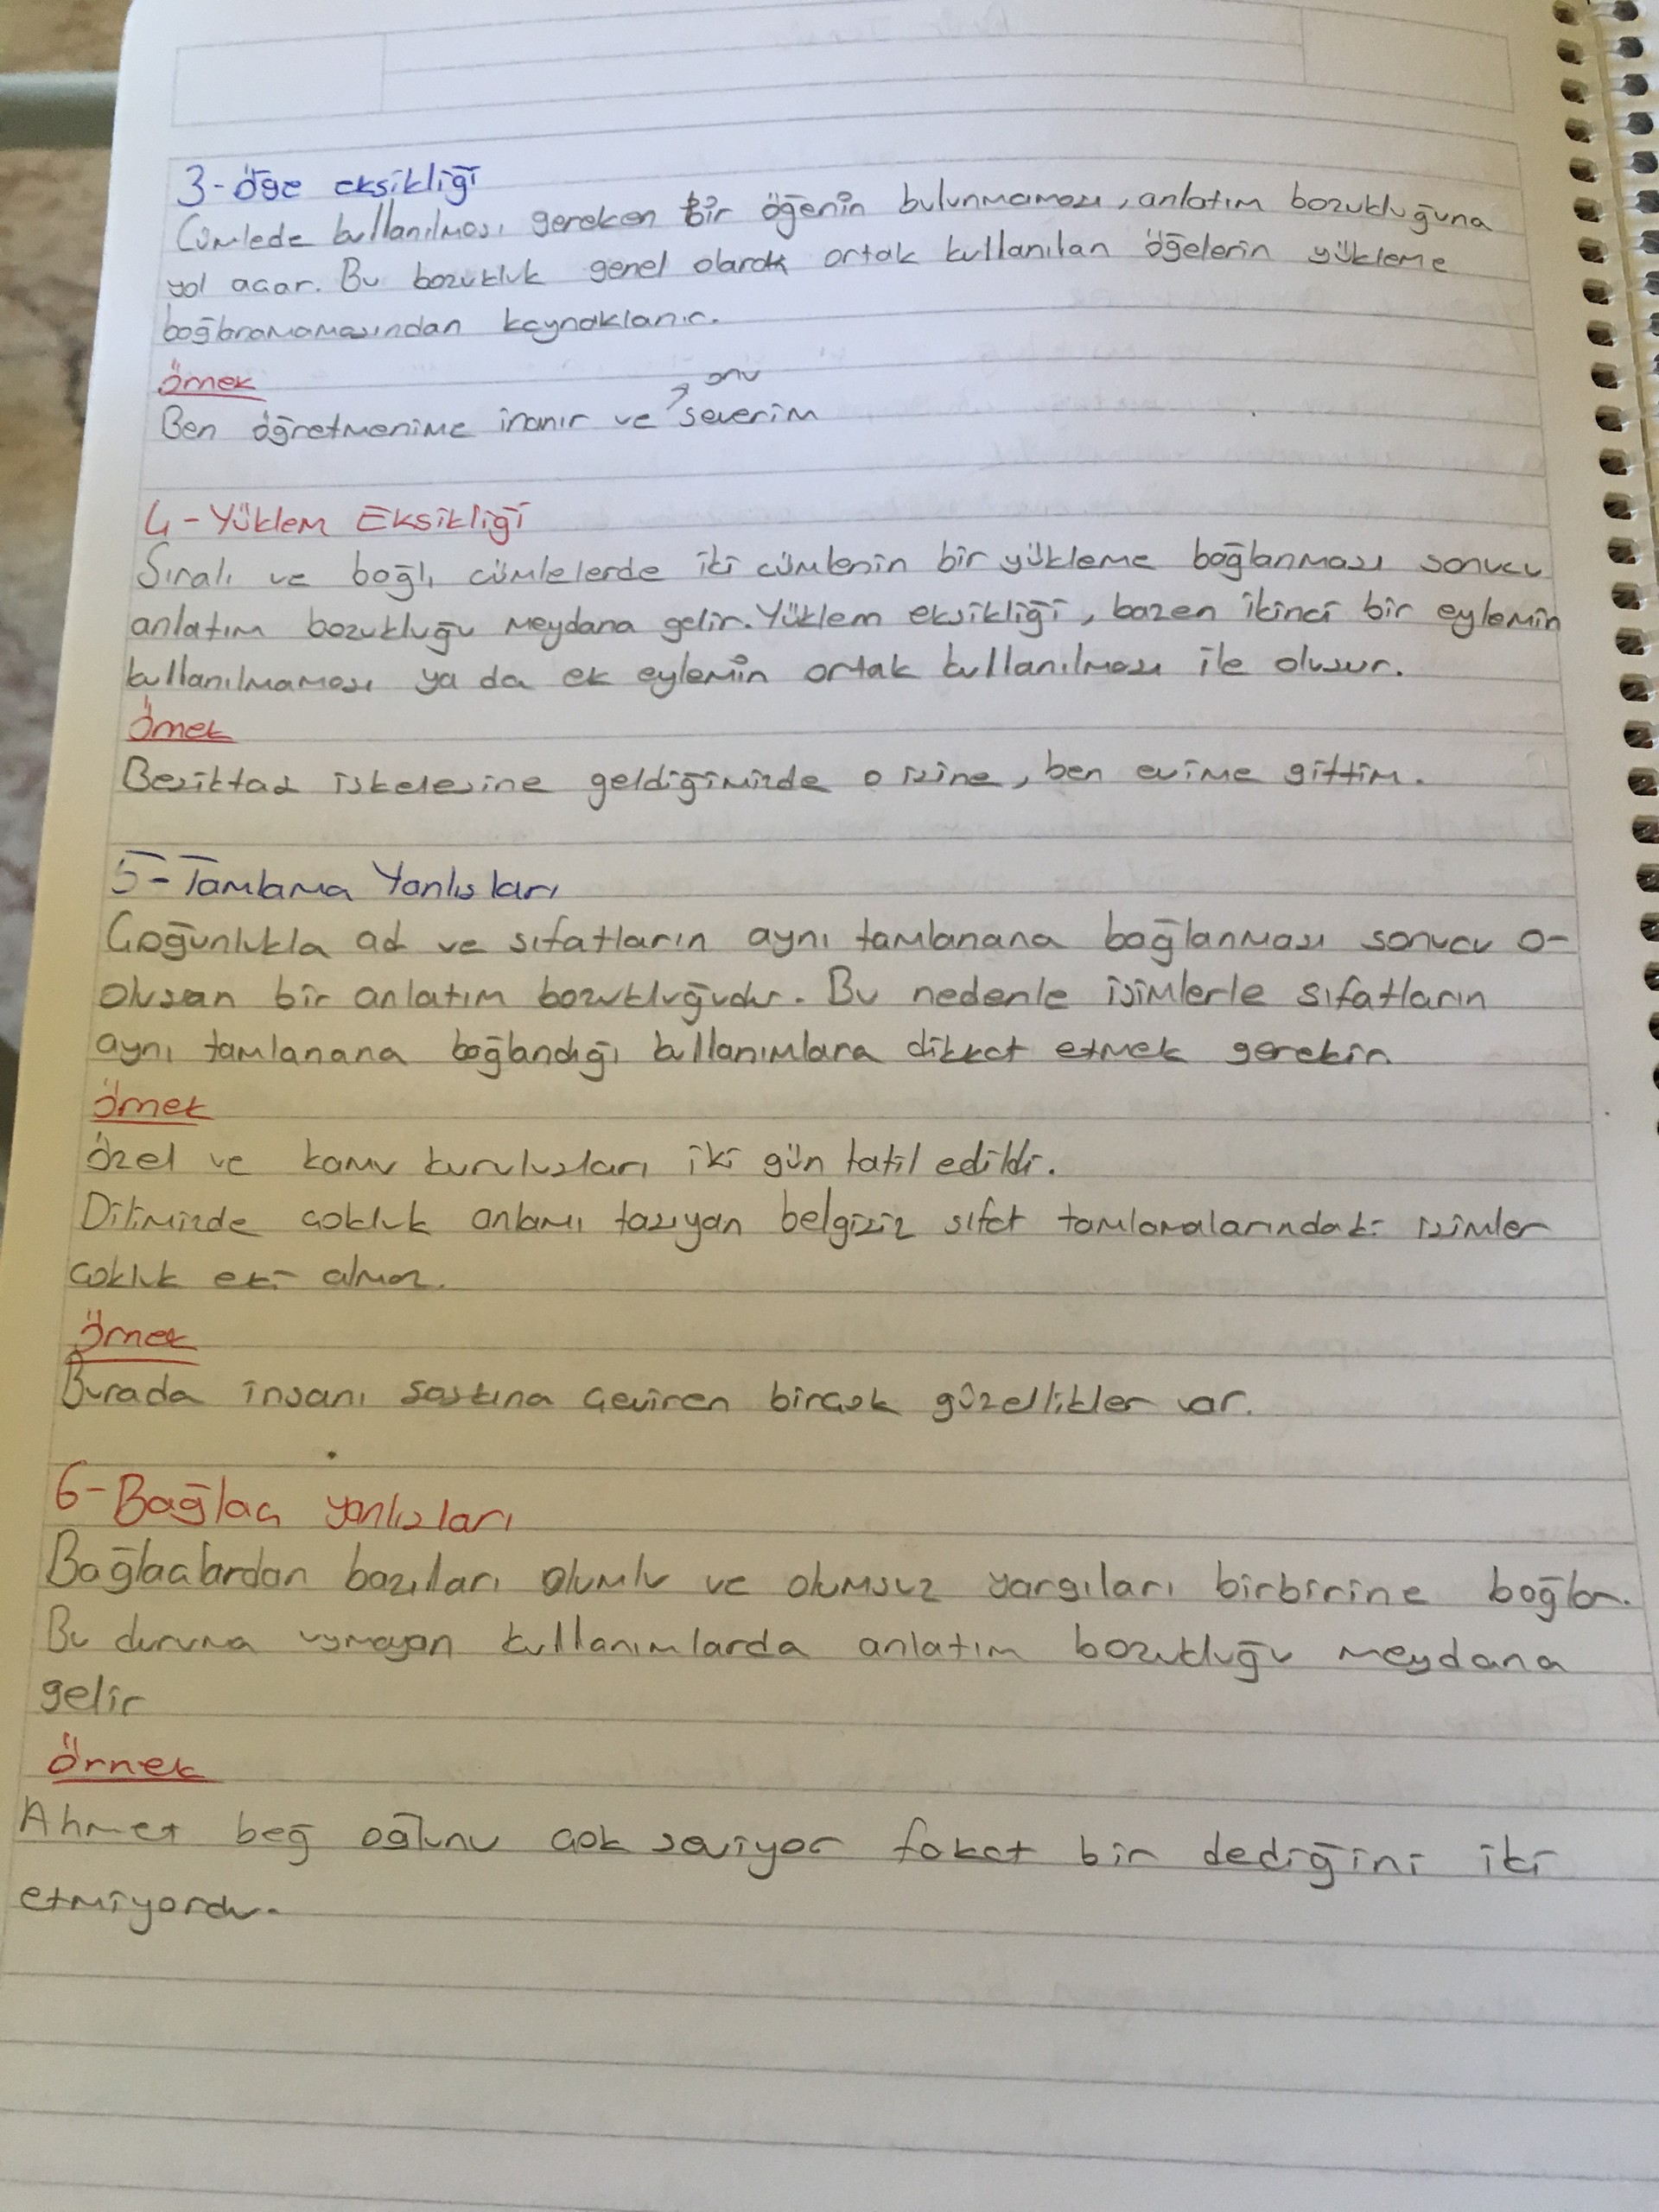 3- Öğe eksikliği
Cümlede kullanılması gereken bir öğenin bulunmaması, anlatım bozukluğuna
yol açar. Bu bozukluk genel olarak ortak kullanılan öğelerin yükleme
bağlanamamasından kaynaklanır.
Örnek
onu
Ben öğretmenime inanır ve severim
4- Yüklem Eksikliği
Sıralı ve bağlı cümlelerde iki cümlenin bir yükleme bağlanması sonucu
anlatım bozukluğu meydana gelir. Yüklem eksikliği, bazen ikinci bir eylemin
kullanılmaması ya da ek eylemin ortak kullanılması ile oluşur.
Örnek
Beşiktaş iskelesine geldiğimizde o işine, ben evime gittim.
5- Tamlama Yanlışları
Çoğunlukla ad ve sıfatların aynı tamlanana bağlanması sonucu o-
oluşan bir anlatım bozukluğudur. Bu nedenle isimlerle sıfatların
aynı tamlanana bağlandığı kullanımlara dikkat etmek gerekir.
Örnek
Özel ve kamu kuruluşları iki gün tatil edildi.
Dilimizde çokluk anlamı taşıyan belgisiz sıfat tamlamalarındaki isimler
çokluk eki almaz.
Örnek
Burada insanı şaşkına çeviren birçok güzellikler var.
6- Bağlaç yanlışları
Bağlaçlardan bazıları olumlu ve olumsuz yargıları birbirine bağlar.
Bu duruma uymayan kullanımlarda anlatım bozukluğu meydana
gelir
Örnek
Ahmet beğ oğlunu çok seviyor fakat bir dediğini iki
etmiyordu.